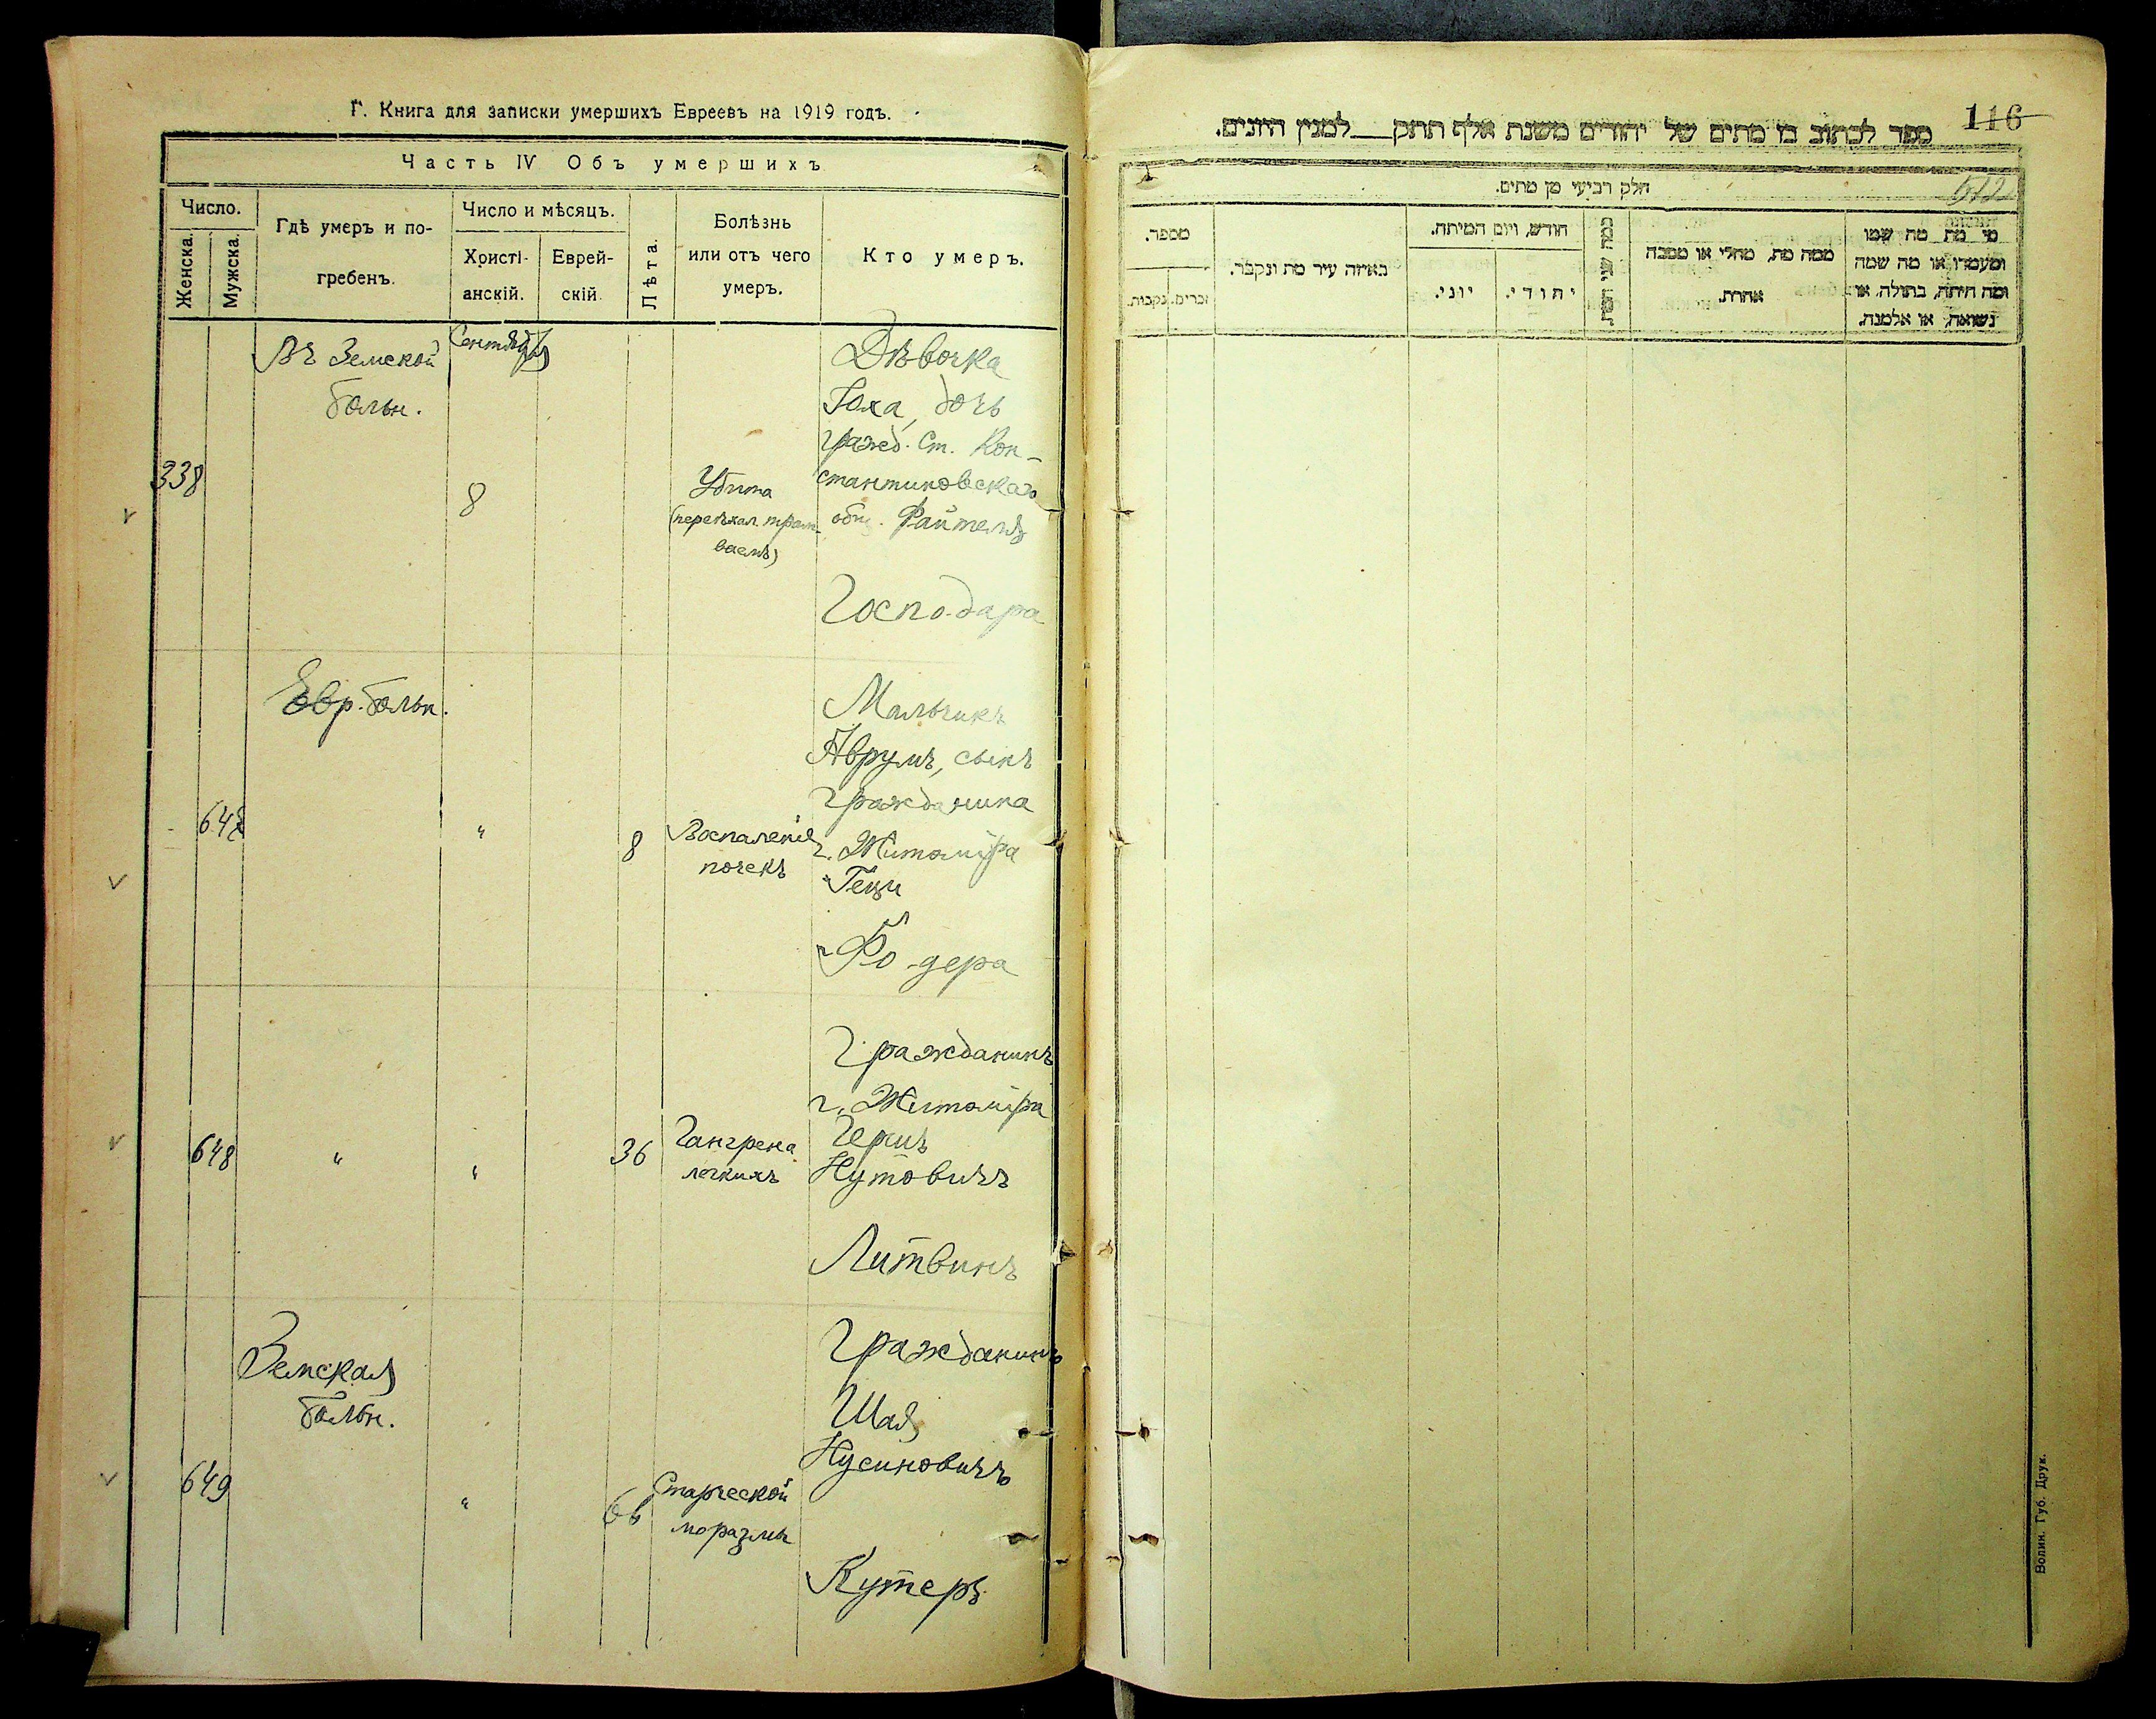 Г. Книга для записки умершихъ Евреевъ на 1919 годъ.
Часть IV Объ умершихъ
Число.
Женска.
Мужска.
Гдѣ умеръ и по-
гребенъ.
Число и мѣсяцъ.
Христі-
анскій.
Еврей-
скій.
Лѣта.
Болѣзнь
или отъ чего
умеръ.
Кто умеръ.
Въ Земской
больн.
Сентября
338
8
Убита
(переѣхал. трам-
ваемъ)
Дѣвочка
дочь
гражд. Ст. Кон-
стантиновскаго
общ. Файтеля
Господара
Евр. больн.
647
"
8
Воспаленіе
почекъ
Мальчикъ
Аврумъ, сынъ
гражданина
г. Житоміра
Фо-дера
648
"
"
36
Гангрена
легкихъ
Гражданинъ
г. Житоміра
Гершъ
Нутовичъ
Литвинъ
Земская
больн.
649
"
Старческой
моразмъ
Гражданинъ
Шая
Нусиновичъ
Кутеръ
116
ספר לכתוב בו מתים של יהודים משנת אלף תתק—למנין היונים.
512
חלק רביעי מן מתים.
מספר.
זכרים.
נקבות.
באיזה עיר מת ונקבר.
חודש, ויום המיתה.
יוני.
יהודי.
ממה מת, מחלי או מסבה
אחרת.
מי מת מה שמו
ומעמדו או מה שמה
ומה היתה, בתולה, או
נשואה, או אלמנה.
Волин. Губ. Друк.